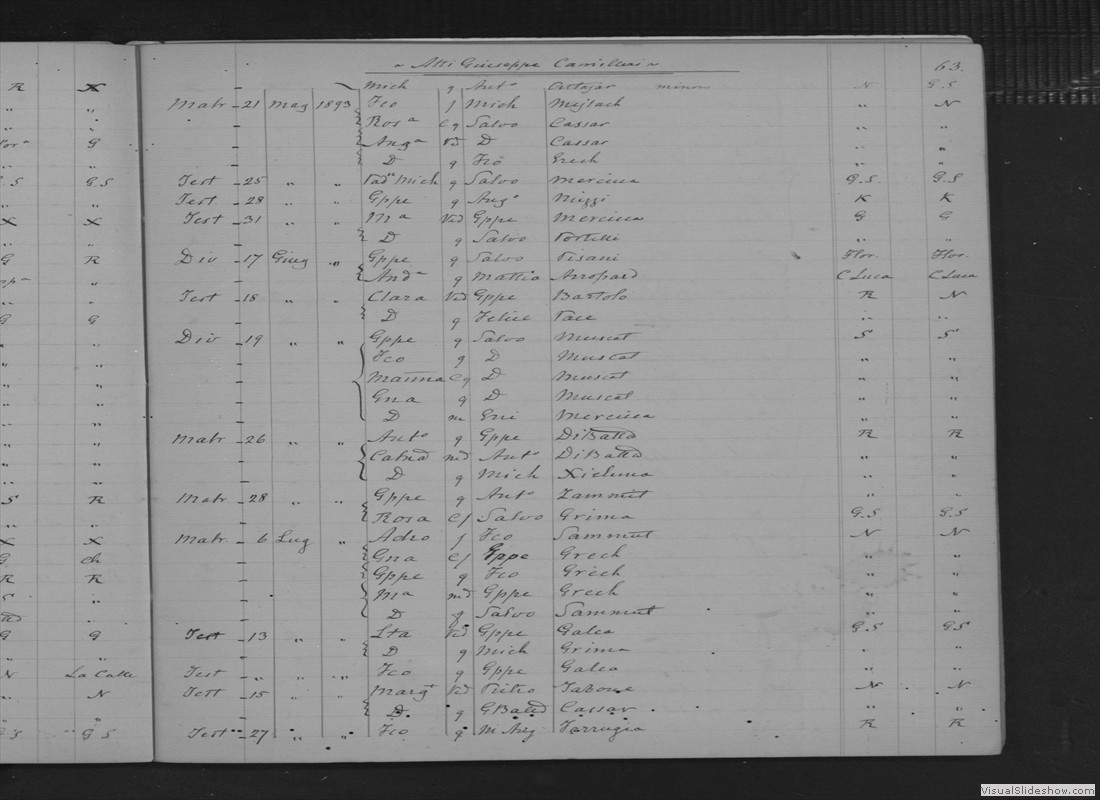 ~ Atti Giuseppe Camilleri ~
63.
Mich g Antº minore N G.S
Matr - 21 Mag 1893 Fco f Mich Mujlach " N
Rosª Cg Salvo Cassar " "
Angª Vd D Cassar " "
D g Fco Grech " "
Test - 25 " " Mich g Salvo Mercieca G.S. G.S
Test - 28 " " Gppe g Angº Mizzi K K
Test - 31 " " Mª Vd Gppe Mercieca G G
D g Salvo Portelli " "
Div - 17 Giug " Gppe g Salvo Pisani Flor. Flor.
Andª g Mattio Azzopard C Luca C Luca
Test - 18 " " Clara Vd Gppe Bartolo R N
D g Felice Pace " "
Div - 19 " " Gppe g Salvo Muscat S S
Fco g D Muscat " "
Marina Cg D Muscat " "
Gna g D Muscat " "
D m Eni Mercieca " "
Matr - 26 " " Antº g Gppe DiBatta R R
Catna md Antº DiBatta " "
D g Mich Xicluna " "
Matr - 28 " " Gppe g Antº Zammit " "
Rosa Cf Salvo Grima G.S G.S
Matr - 6 Lug " Adeo f Fco Sammut N N
Gna Cf Gppe Grech " "
Gppe g Fco Grech " "
Mª md Gppe Grech " "
D g Salvo Sammut " "
Test - 13 " " Lta Vd Gppe Galea G.S GS
D g Mich Grima " "
Test - " " " Fco g Gppe Galea " "
Test - 15 " " Margª Vd Pietro Tabone N N
D. g GBatta Cassar " "
Test - 27 " " Fco g M Ang Farrugia R R
R X
" "
" "
G
" "
G.S G.S
" "
X X
" "
G R
" "
G G
S R
" "
X X
G ch
R R
S "
G G
" "
N La Calle
" N
" "
GS " GS
VisualSlideshow.com